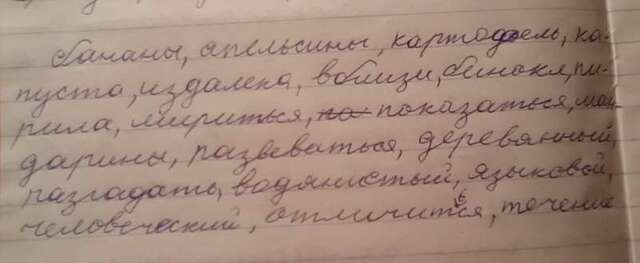 бананы, апельсины, картофель, ка-
пуста, издалека, вблизи, бинокль, пи-
рила, мириться, по показаться, ман-
дарины, развеваться, деревянный,
разгадать, водянистый, языковой,
человеческий, отличиться, течение